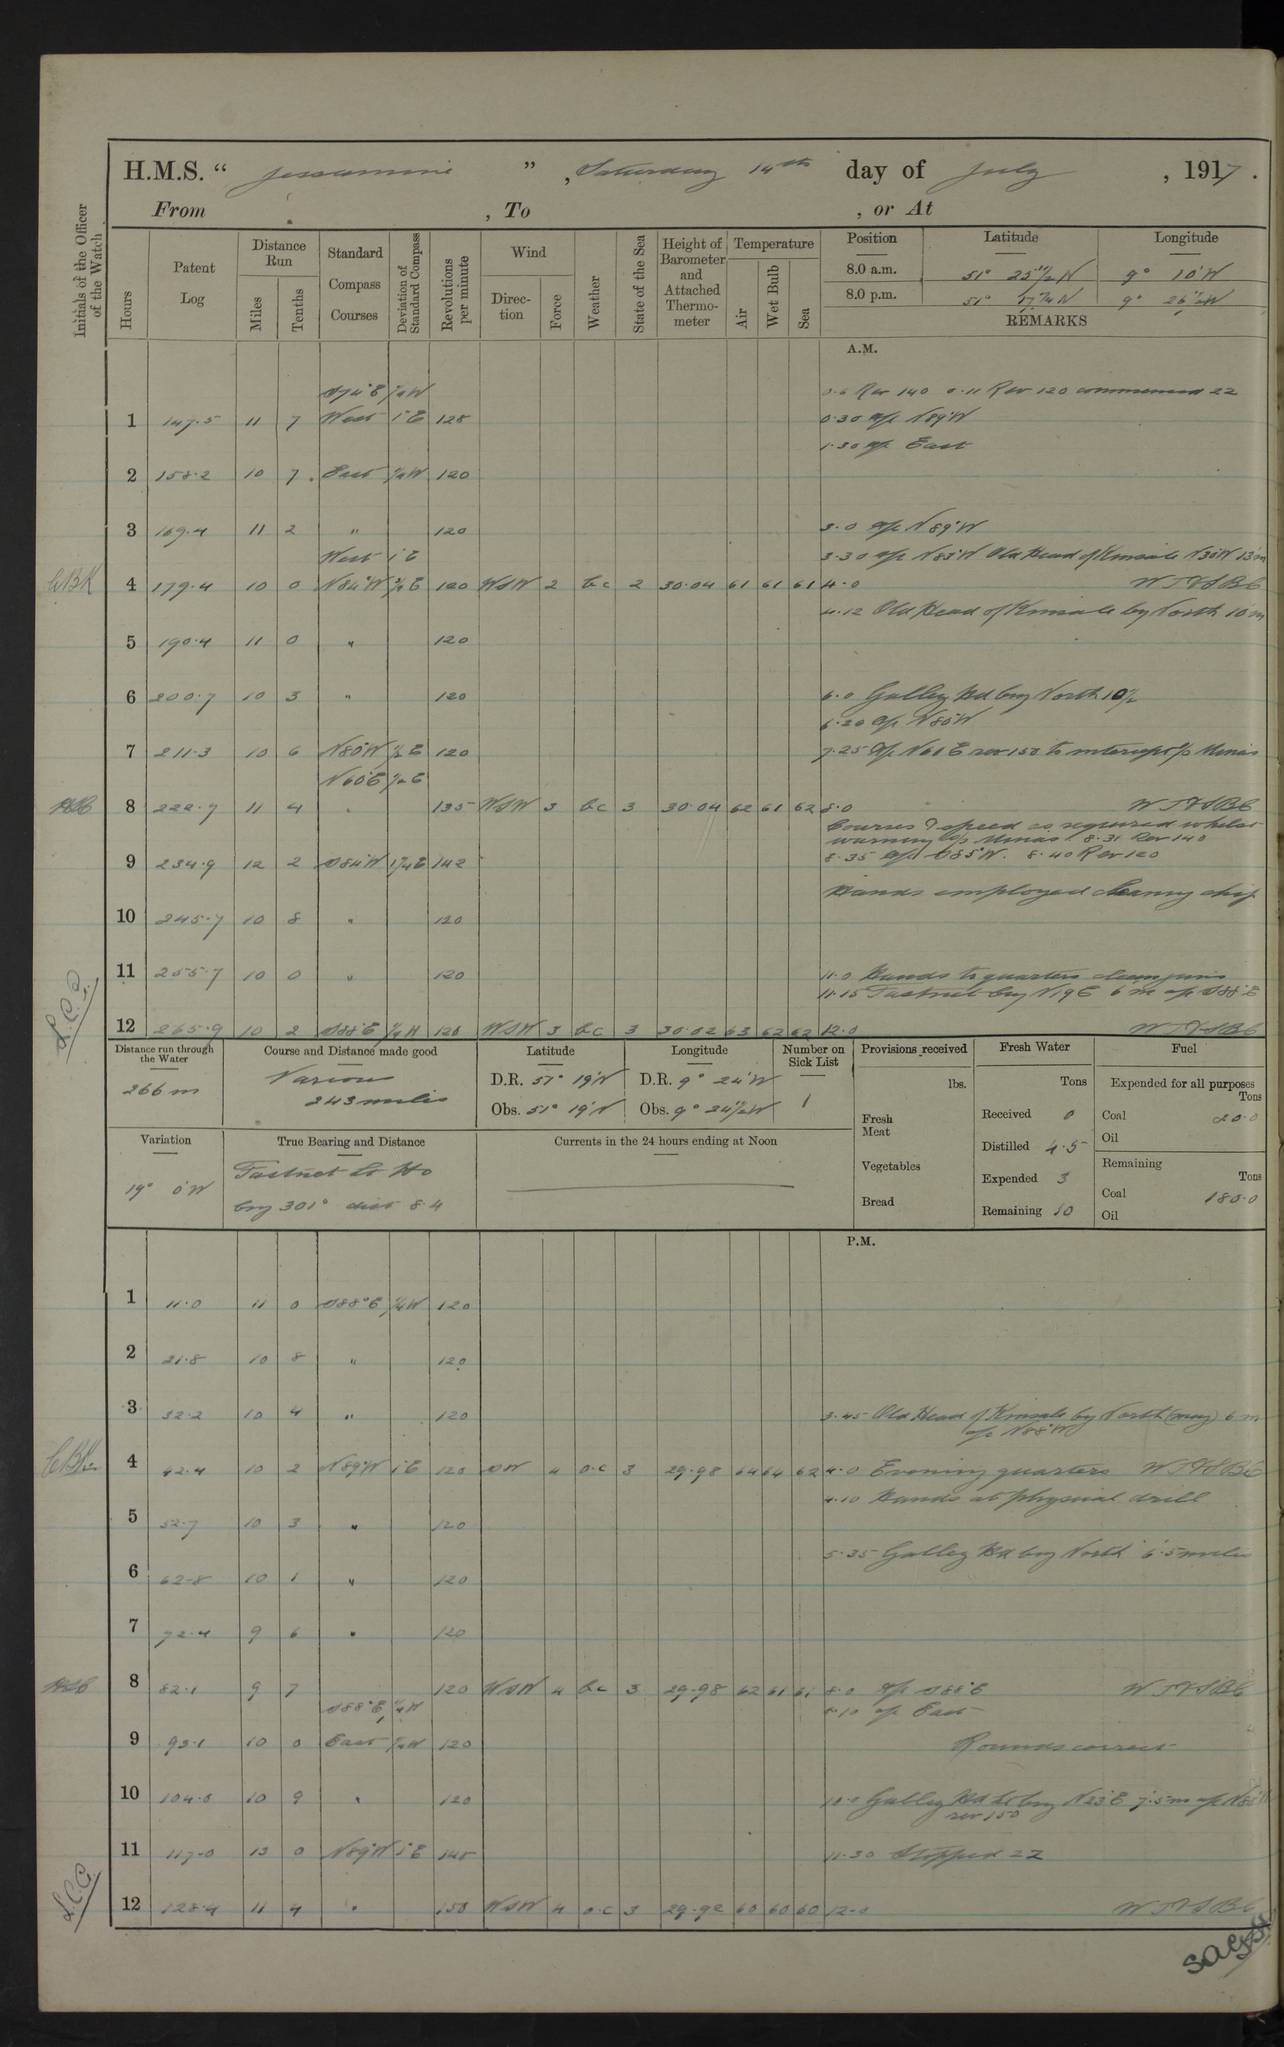 H.M.S. " Jessamine ", Saturday 14th day of July, 1917.
From , To , or At
Initials of the Officer of the Watch
Hours
Patent Log
Distance Run
Miles Tenths
Standard Compass Courses
Deviation of Standard Compass
Revolutions per minute
Wind
Direction Force
Weather
State of the Sea
Height of Barometer and Attached Thermometer
Temperature
Air Wet Bulb Sea
Position Latitude Longitude
8.0 a.m. 51° 25 1/2 N 9° 10' W
8.0 p.m. 51° 9° 26 1/2 W
REMARKS
A.M.
S74°E 1/4W 0.6 Rev 140 0.11 Rev 120 commenced ZZ
1 147.5 11 7 West 1°E 128 0.30 a/c N89°W
1.30 a/c East
2 158.2 10 7 East 1/4W 120
3 169.4 11 2 " 120 3.0 a/c N89°W
West 1°E 3.30 a/c N83°W Old Head of Kinsale N30W 13m
CBK 4 179.4 10 0 N84°W 3/4E 120 WSW 2 bc 2 30.04 61 61 61 4.0
4.12 Old Head of Kinsale by North 10m
5 190.4 11 0 " 120
6 200.7 10 3 " 120 6.0 Galley Hd brg North 10 1/2
6.20 a/c N80W
7 211.3 10 6 N80°W 1/2E 120 7.25 a/c N61E rev 150 to intercept s/s Minas
N60°E 1/2E
8 222.7 11 4 " 135 WSW 3 bc 3 30.04 62 61 62 8.0
Courses & speed as required whilst
warning s/s Minas. 8.31 Rev 140
9 234.9 12 2 S84°W 1 1/4E 142 8.35 a/c S85°W. 8.40 Rev 120
Hands employed cleaning ship
10 245.7 10 8 " 120
11 255.7 10 0 " 120 11.0 Hands to quarters clean guns
11.15 Fastnet brg N19E 6m a/c S88°E
12 265.9 10 2 S88°E 1/4W 120 WSW 3 bc 3 30.02 63 62 62 12.0
Distance run through the Water
266m
Course and Distance made good
Various
243 miles
Latitude
D.R. 51° 19'N
Obs. 51° 19'N
Longitude
D.R. 9° 24'W
Obs. 9° 24 1/2'W
Number on Sick List
1
Provisions received
lbs.
Fresh Meat
Vegetables
Bread
Fresh Water
Tons
Received 0
Distilled 4.5
Expended 3
Remaining 50
Fuel
Expended for all purposes
Tons
Coal 20.0
Oil
Remaining
Tons
Coal 180.0
Oil
Variation
19° 0'W
True Bearing and Distance
Fastnet Lt Ho
brg 301° dist 8.4
Currents in the 24 hours ending at Noon
P.M.
1 11.0 11 0 S88°E 1/4W 120
2 21.8 10 8 " 120
3 32.2 10 4 " 120 3.45 Old Head of Kinsale by North (mag) 6m
a/c N88°W
4 42.4 10 2 N89°W 1°E 120 SW 4 o.c 3 29.98 64 64 62 4.0 Evening quarters
4.10 Hands at physical drill
5 52.7 10 3 " 120
5.35 Galley Hd brg North 6.5 miles
6 62.8 10 1 " 120
7 72.4 9 6 " 120
8 82.1 9 7 120 WSW 4 bc 3 29.98 62 61 61 8.0 a/c S88°E
S88°E 1/4W 8.10 a/c East
9 92.1 10 0 East 1/4W 120 Rounds correct
10 104.0 10 9 " 120 10.0 Galley Hd Lt brg N23E 7.5m a/c
rev 150
11 117.0 13 0 N89°W 1°E 148 11.30 Stopped ZZ
12 128.4 11 4 " 150 WSW 4 o.c 3 29.92 60 60 60 12.0